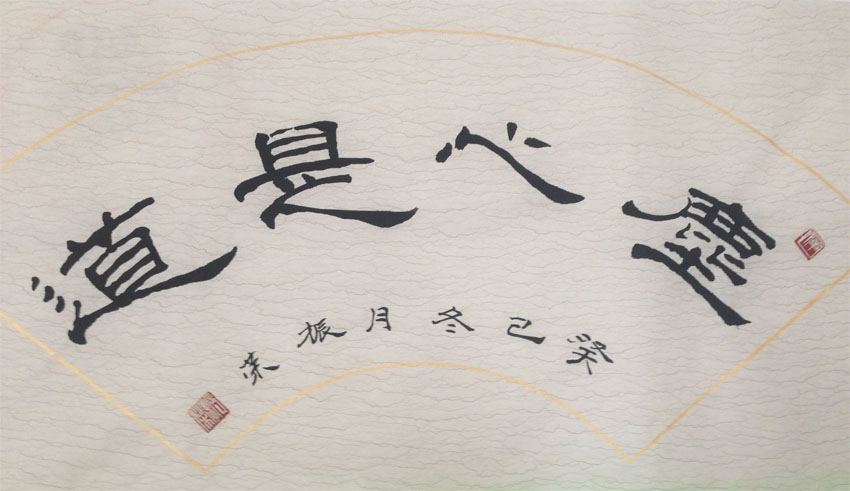 塵心是道
癸巳冬月振荣